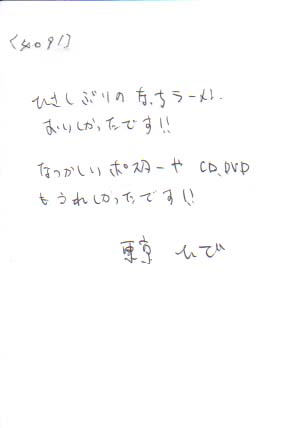 [4091]
ひさしぶりの なっちラーメン.
おいしかったです!!
なつかしいポスターや CD、DVD
もうれしかったです!!
東京 ひで